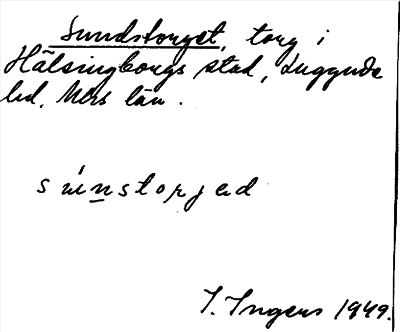 Sundstorget, torg i
Hälsingborgs stad, Luggude
hd, Mlhs län.
sú̵nstorjəd
I. Ingers 1949.